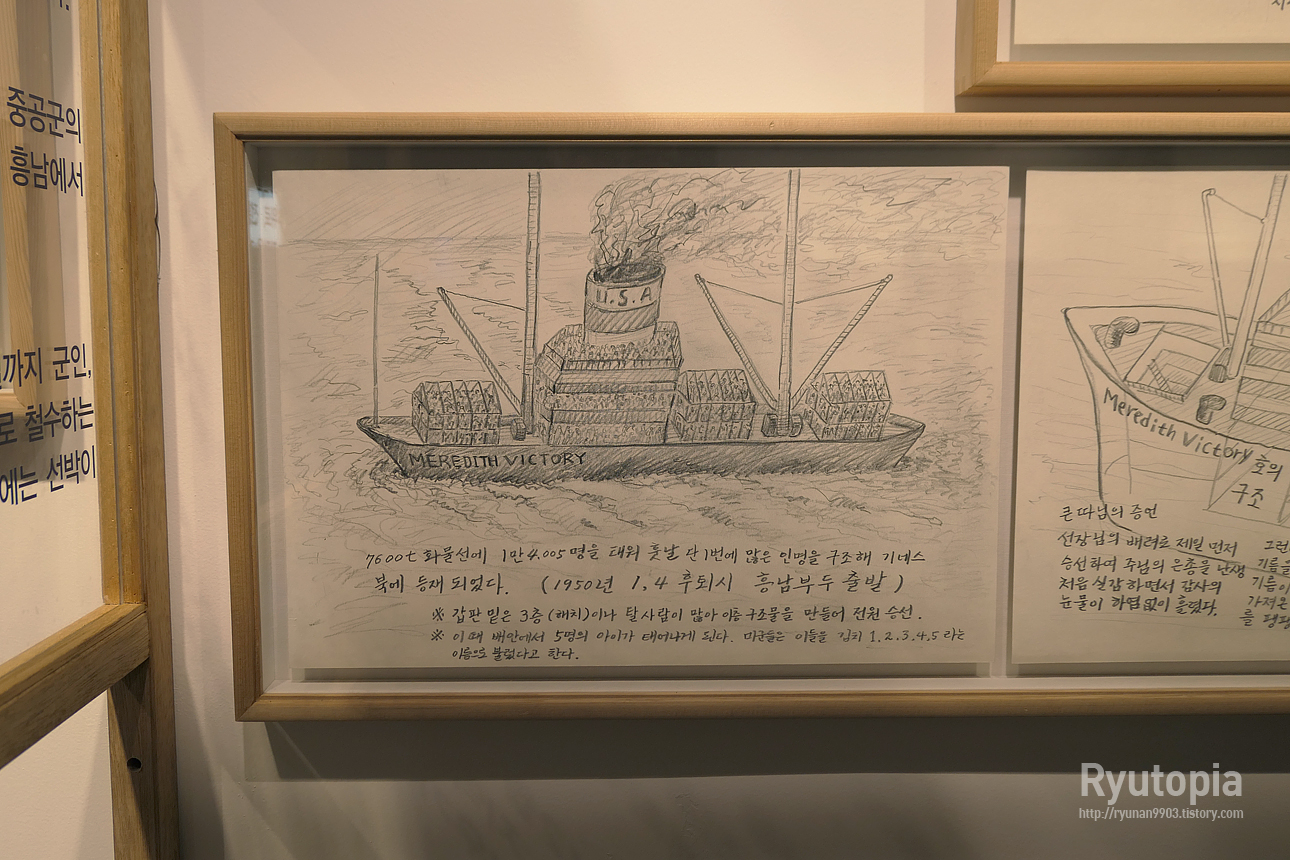 중공군의
흥남에서
까지 군인,
로 철수하는
에는 선박이
U.S.A
MEREDITH VICTORY
7600t 화물선에 1만4,005명을 태워 훗날 단1번에 많은 인명을 구조해 기네스
북에 등재 되었다. (1950년 1,4 후퇴시 흥남부두 출발)
※ 갑판 밑은 3층(해치)이나 탈사람이 많아 이층구조물을 만들어 전원 승선.
※ 이 때 배안에서 5명의 아이가 태어나게 된다. 미군들은 이들을 김치 1,2,3,4,5 라는
이름으로 불렀다고 한다.
Meredith Victory호의
구조
큰 따님의 증언
선장님의 배려로 제일 먼저
승선하여 주님의 은총을 난생
처음 실감하면서 감사의
눈물이 하염없이 흘렸다.
그런
기름을
기름이
가져온
를 평평
Ryutopia
http://ryunan9903.tistory.com